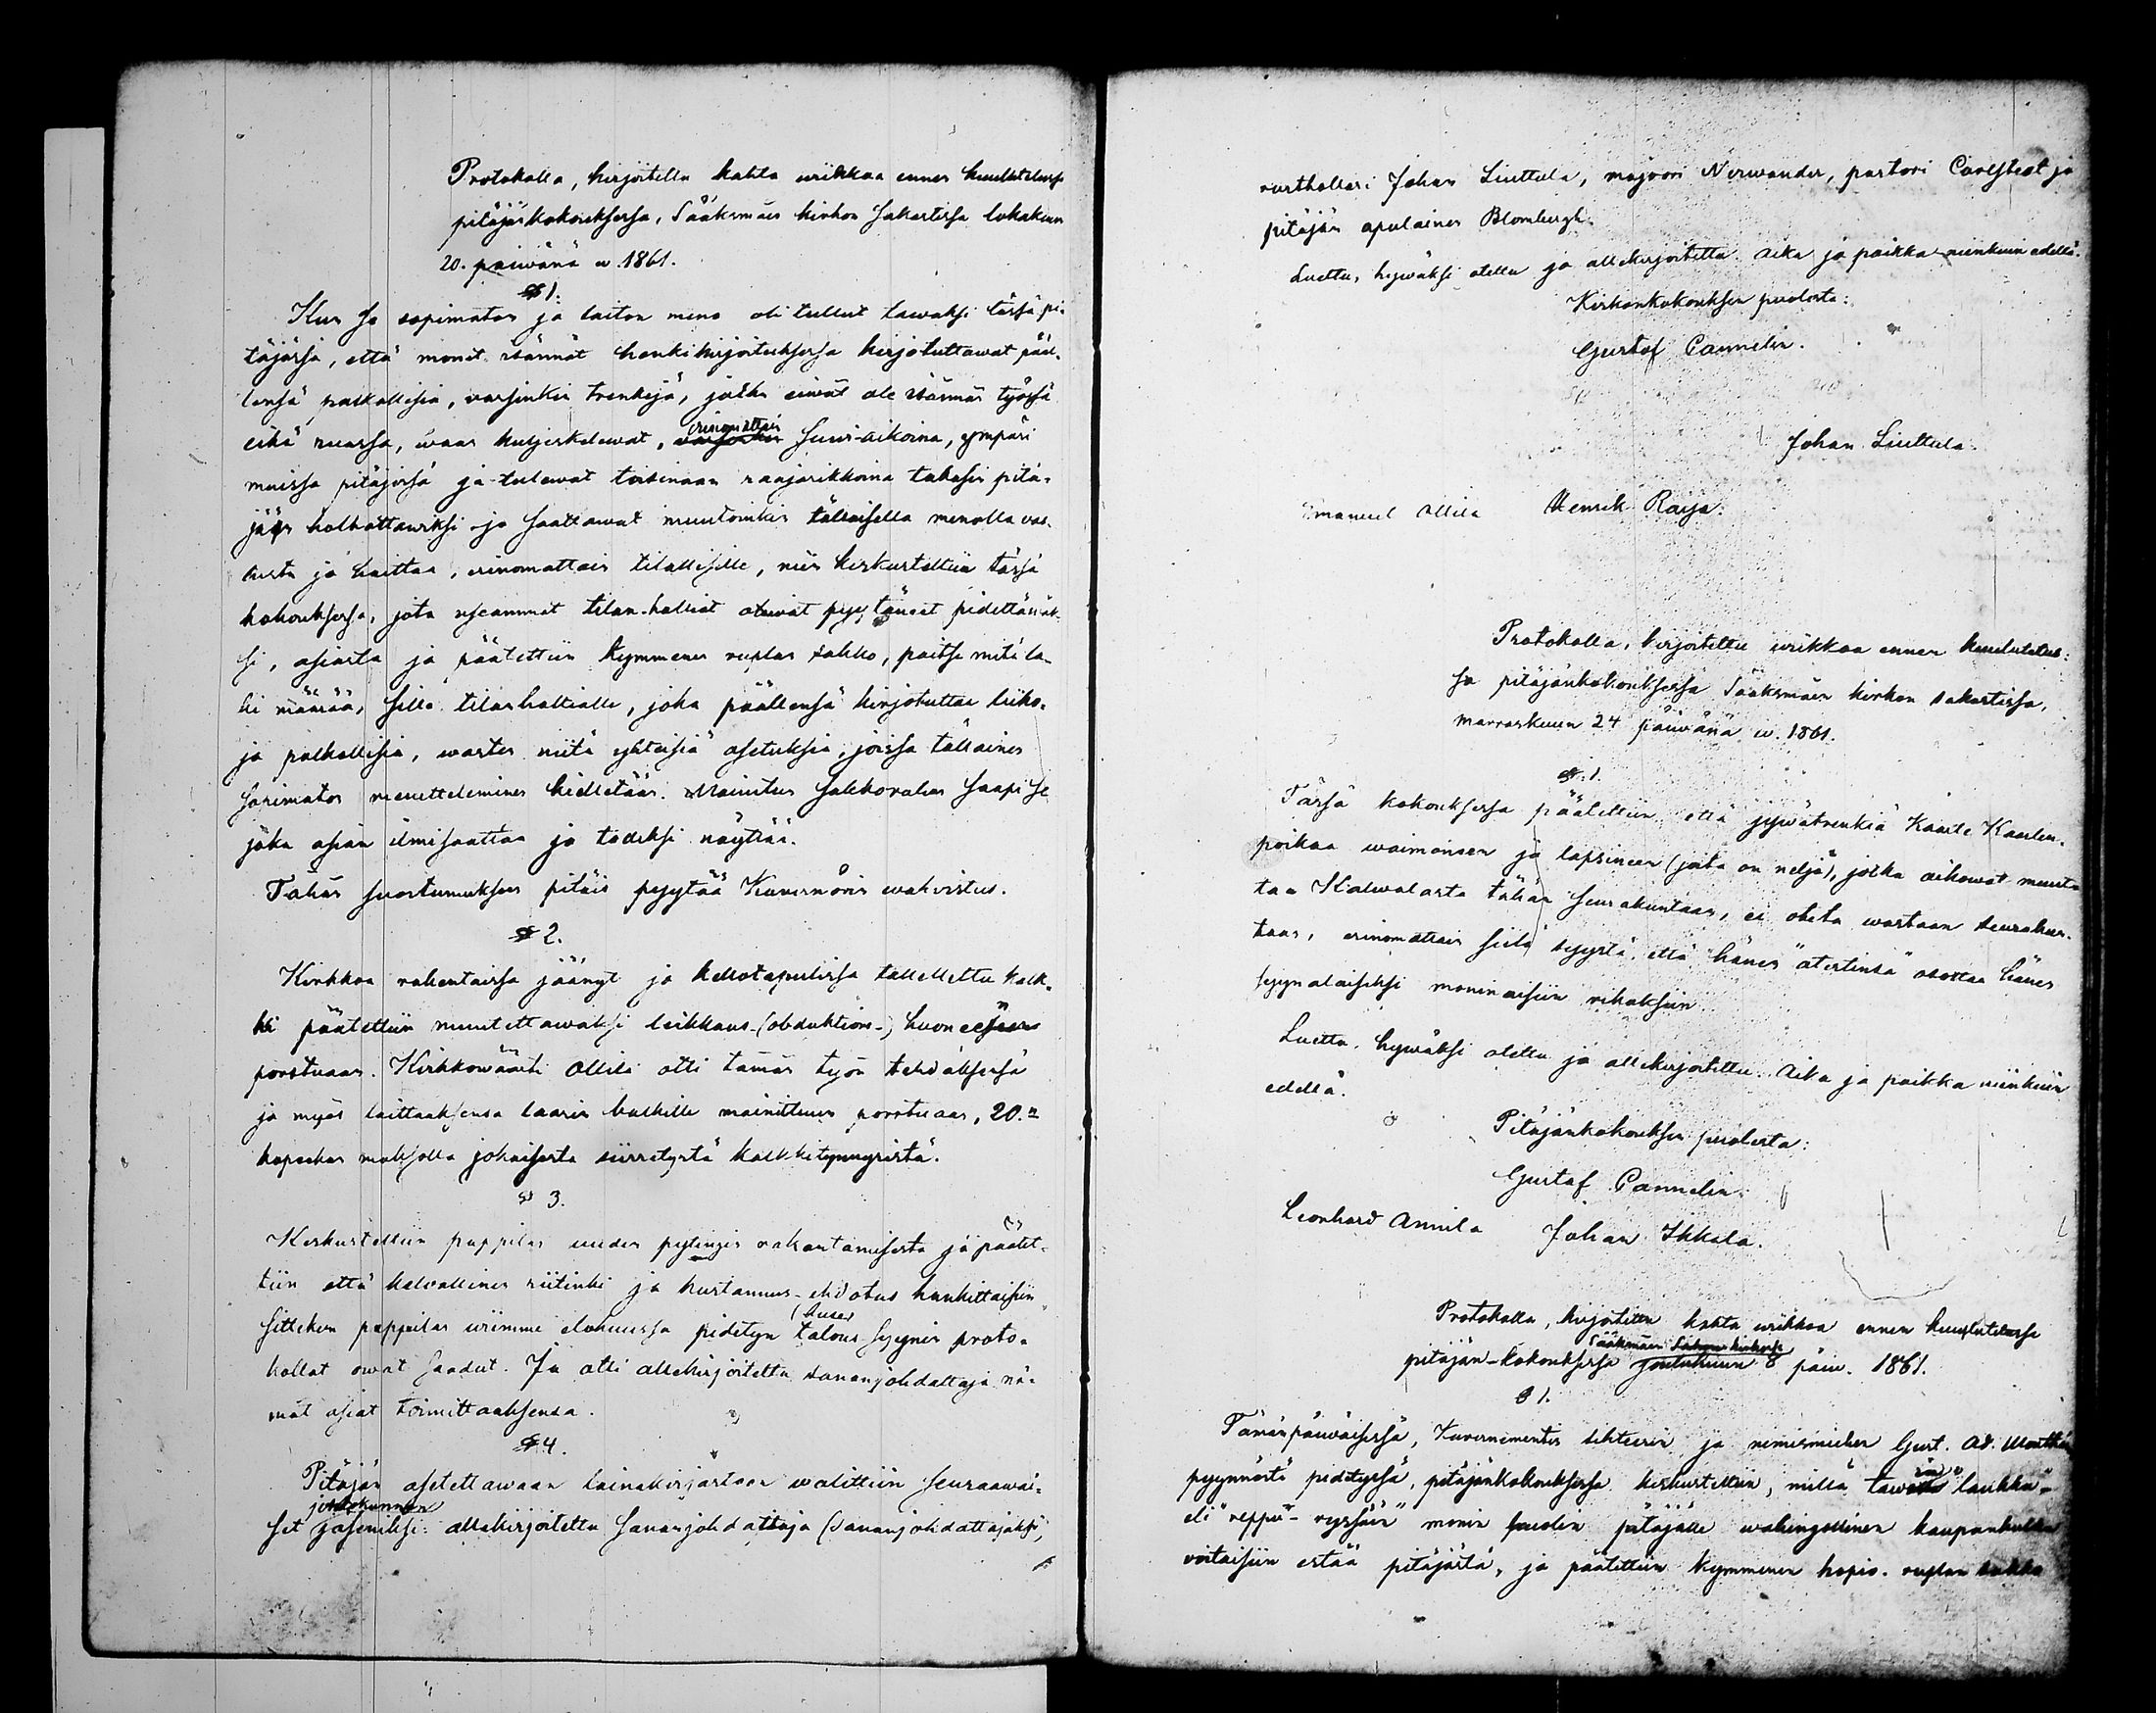 Protokolla, kirjoitettu kahta wiikkaa ennen kuulutetussa
pitäjänkokouksessa, Sääksmäen kirkon sakastissa lokakuun
20. päiwänä w. 1861.
§ 1.
Kun se sopimatoin ja laiton meno oli tullut tawaksi tässä pi-
täjässä, että monet isännät henkikirjoituksessa kirjotuttawat pääl-
lensä palkollisia, varsinkin trenkejä, jotka eiwät ole isännän työssä
eikä ruassa, waan kuljeskelewat, erinomattain suwi-aikoina, ympäri
muissa pitäjissä ja tulewat toisinaan raajarikkoina takasin pitä-
jään holhottawiksi ja saattawat muutoinkin tällaisella menolla vas-
tusta ja haittaa, erinomattain tilallisille, niin keskusteltiin tässä
kokouksessa, jota useammat tilan-haltiat oliwat pyytäneet pidettäwäk-
si, asiasta ja päätettiin kymmenen ruplan sakko, paitse mitä la-
ki määrää, sille tilanhaltialle, joka päällensä kirjotuttaa liiko-
ja palkollisia, wasten niitä yhteisiä asetuksia, joissa tällainen
sopimatoin menetteleminen kielletään. Mainitun sakkorahan saapi se
joka asian ilmisaattaa ja todeksi näyttää.
Tähän suostumukseen pitäis pyytää Kuvernörin wahvistus.
§ 2.
Kirkkoa rakentaissa jäänyt ja kellotapulissa talletettu kalk-
ki päätettiin muutettawaksi leikkaus-(obduktion-) huoneesen
porstuaan. Kirkkowäärti Ollila otti tämän työn tehdäksensä
ja myös laittaaksensa laarin kalkille mainittuun porstuaan, 20.n
kopeekan maksolla jokaisesta siirretystä kalkkitynnyristä.
§ 3.
Keskusteltiin pappilan uuden pytingin rakentamisesta ja päätet-
tiin että kelvollinen riitinki ja kustannus-ehdotus hankittaisiin
sittekun pappilan wiimme elokuussa pidetyn talous- (huse) syynin proto-
kollat owat saadut. Ja otti allekirjoitettu sananjohdattaja nä-
mät asiat toimittaaksensa.
§ 4.
Pitäjän asetettawaan lainakirjastoon walittiin seuraawai-
set johtokunnan jäseniksi: allekirjoitettu sananjohdattaja (sananjohdattajaksi),
rusthollari Johan Liuttula, majoori Nerwander, pastori Carlstedt ja
pitäjän apulainen Blombergh.
Luettu, hywäksi otettu ja allekirjoitettu. Aika ja paikka niinkuin edellä.
Kirkonkokouksen puolesta:
Gustaf Cannelin.
Johan Liuttula.
Emanuel Ollila Henrik Raija.
Protokolla, kirjoitettu wiikkaa ennen kuulutetus-
sa pitäjänkokouksessa Sääksmäen kirkon sakastissa,
marraskuun 24 päiwänä w. 1861.
§ 1.
Tässä kokouksessa päätettiin että jywätrenkiä Kaarle Kaarlen-
poikaa waimonsen ja lapsineen (joita on neljä), jotka aikowat muut-
taa Kalwolasta tähän seurakuntaan, ei oteta wastaan seurakun-
taan, erinomattain siitä syystä, että hänen "atestinsa" osottaa hänen
syynalaiseksi moninaisiin rikoksiin.
Luettu, hywäksi otettu ja allekirjoitettu. Aika ja paikka niinkuin
edellä.
Pitäjänkokouksen puolesta:
Gustaf Cannelin.
Leonhard Annila Johan Ihkala.
Protokolla, kirjoitettu kahta wiikkoa ennen kuulutetussa
pitäjän-kokouksessa Sääksmäen kirkossa Joulukuun 8 päiw. 1861.
§ 1.
Tämänpäiwäisessä, Kuvernementin sihteerin ja nimismiehen Gust. Ad.
pyynnöstä pidetyssä, pitäjänkokouksessa keskusteltiin, millä tawoin "laukku-"
eli "reppu-ryssäin" monin puolin pitäjälle wahingollinen kaupankulku
voitaisiin estää pitäjästä, ja päätettiin kymmenen hopia. ruplan sakko